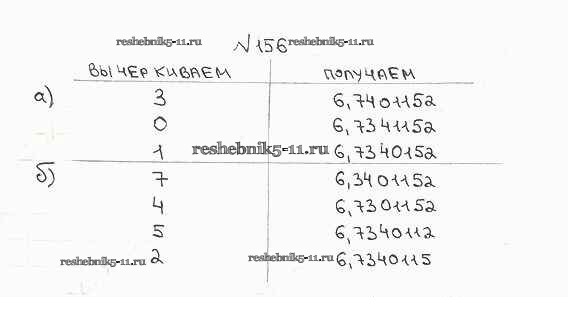 reshebnik5-11.ru №156 reshebnik5-11.ru
ВЫЧЕРКИВАЕМ ПОЛУЧАЕМ
а) 3 6,7401152
0 6,7341152
1 reshebnik5-11.ru 6,7340152
б) 7 6,3401152
4 6,7301152
5 6,7340112
reshebnik5-11.ru 2 reshebnik5-11.ru 6,7340115